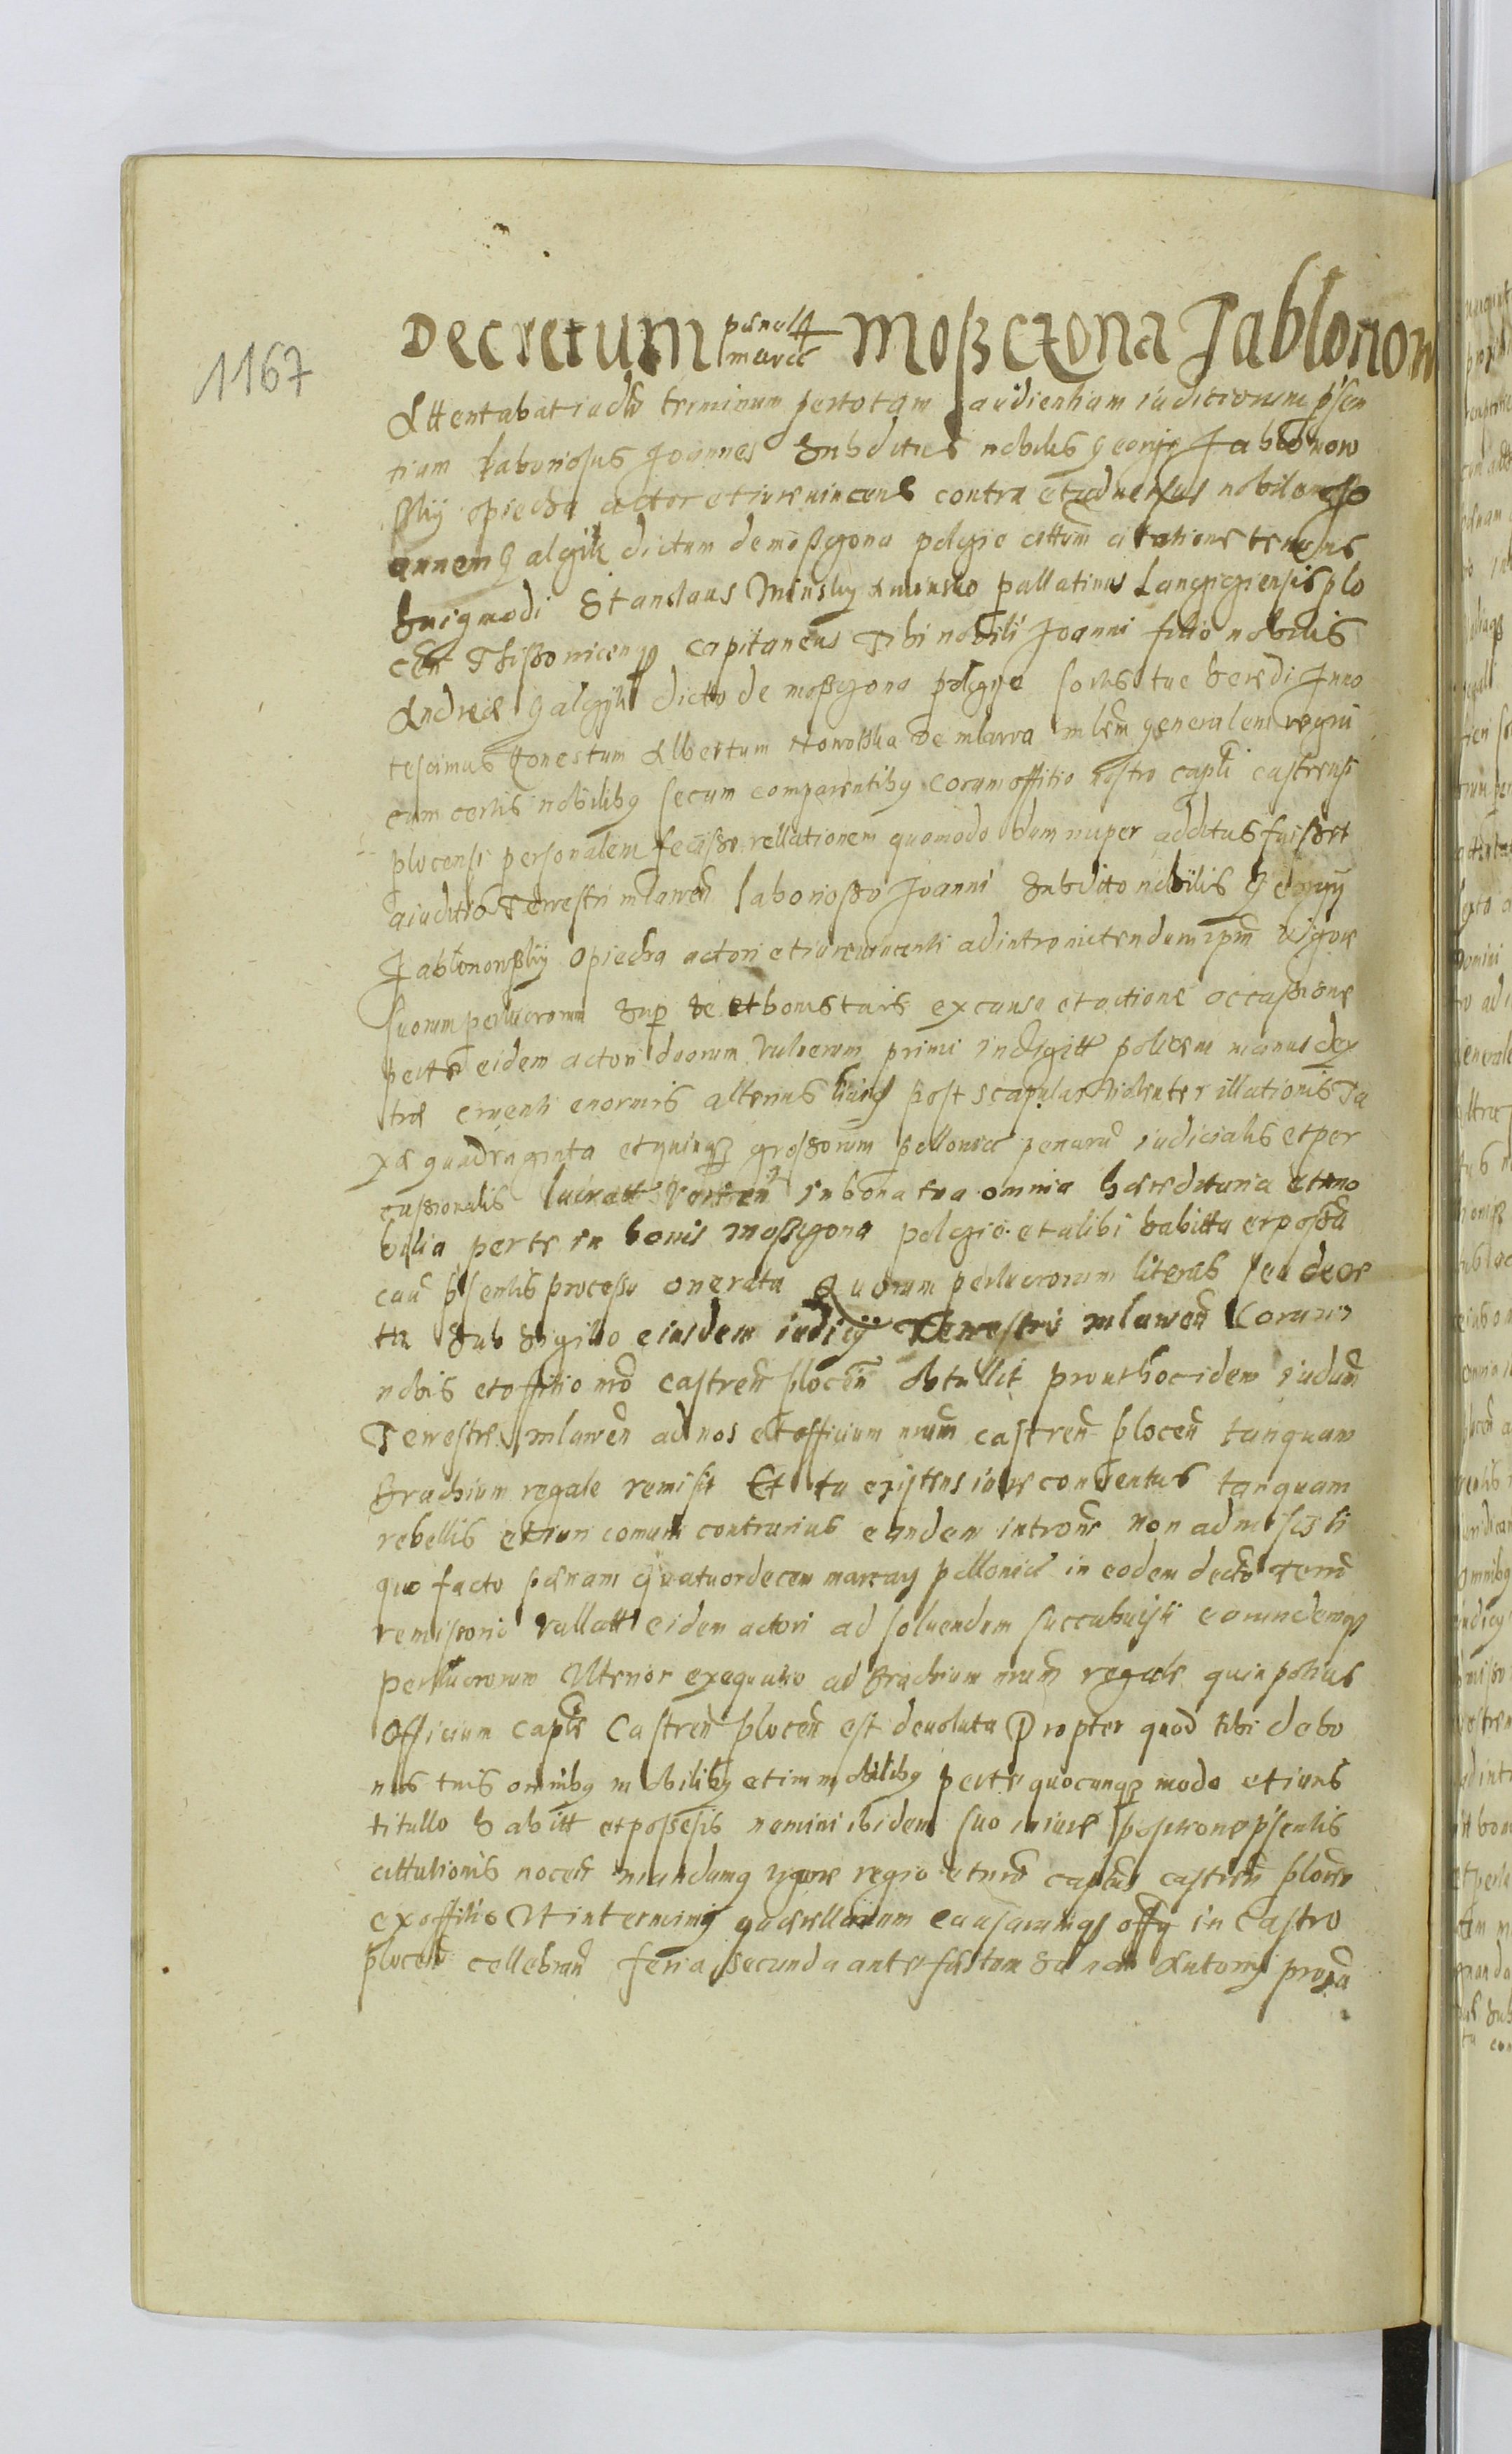 1167
Decretum pœnæ 14 marcæ Moßczona Jablonow
Attentabat iudm terminum per totam audientiam iudiciorum psen
tium laboriosus Joannes Subditus nobilis Georgii Jablonow
skij Opiecha actor et iurevincens contra et adversus nobilem Jo
annem Galczik dictum de Moßczona pelczie cittum citatione tenoris
huiqmodi Stanslaus Minsky de Minsko pallatinus Lancziciensis plo
cen capitaneus Tibi nobili Joanni filio nobilis
Andreæ Galczyk dicto de Moßczona pelczye sortis tue heredi Inno
tescimus honestum Albertum de mlawa mlem generalem regni
cum certis nobilibq secum comparentibq coram offitio nostro capli castrensi
plocensi personalem fecisse rellationem quomodo dum nuper additus fuisset
a iuditio Terrestri mlawen laborioßo Joanni Subdito nobilis Georgij
Jablonowskij Opiecha actori et iurevincenti ad intromittendum ipm vigore
suorum perlucrorum Sup te et bonis tuis ex causa et actione occassione
certe eidem actori duorum vulnerum primi in digitt police manus dex
træ cruenti enormis alterius lividi post scapulas violenter illationis Ta
xæ quadraginta et quinqz grossorum pollonice penarum iudicialis et per
cussionalis lucratt in bona tua omnia hæreditaria et mo
bilia certe in bonis Moßczona pelczie et alibi habitta et possa
cau psentis processu onerata Quorum perlucrorum literas seu decre
ta Sub Sigillo eiusdem iudicij Terrestris mlawen Coram
nobis et offitio nro castren plocen obtullit prout hoc idem iudum
Terrestre mlawen ad nos et officium nrum castren plocen tanquam
Brachium regale remisit Et tu existens iure convictus tanquam
rebellis et iuri comuni contrarius eandem introm non admisisti
quo facto pœnam quatuordecem marcaq pollonice in eodem decto Terri
remissorio vallatt eidem actori ad solvendum succubuisti eorundemqz
perlucrorum Ulterior exequutio ad Brachium nrum regale quin potius
Officium caple Castren plocen est devoluta Propter quod tibi de bo
nis tuis omnibq mobilibq et immobilibq certe quocunqz modo et iuris
titullo habitt et possesis nemini ibidem suo in iure psentis
cittationis nocen mandamq vigore regio et nro captus castren plocen
ex offitio Ut in terminis quærellarum causarumqz offy in Castro
plocen cellebran feria secunda ante festum Sancti Antony proxa